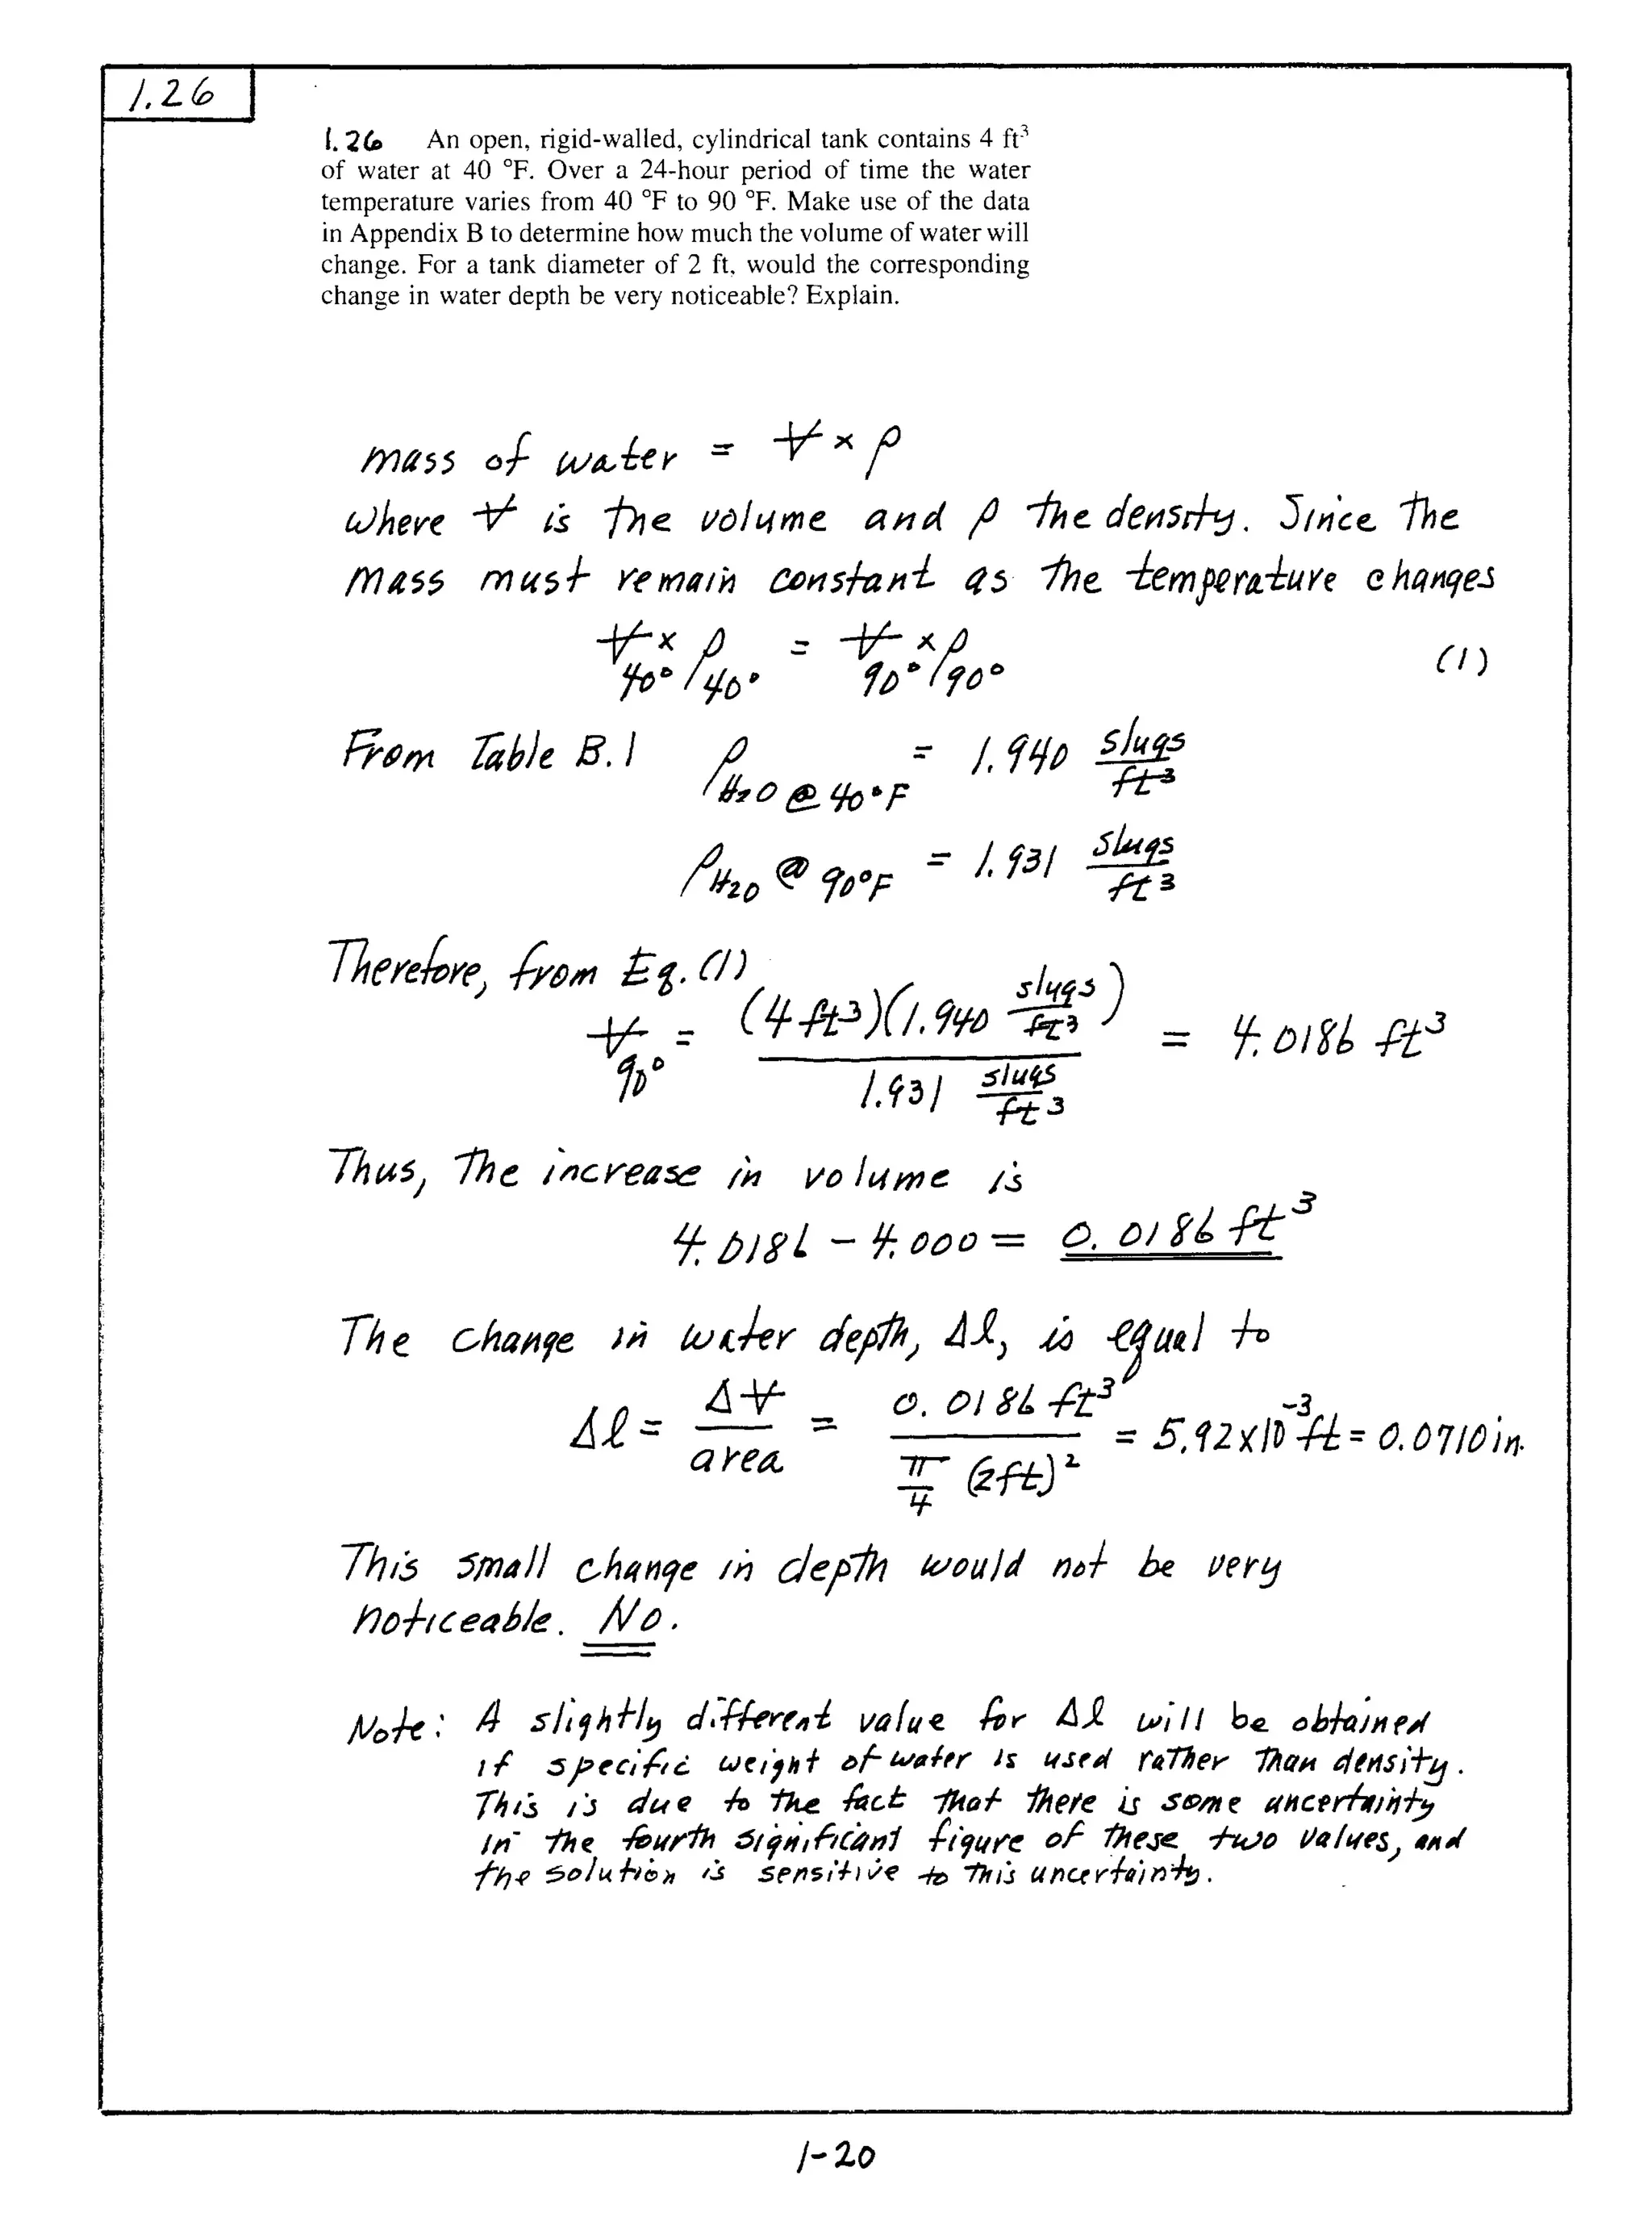 1.26
1.26 An open, rigid-walled, cylindrical tank contains 4 ft³
of water at 40 °F. Over a 24-hour period of time the water
temperature varies from 40 °F to 90 °F. Make use of the data
in Appendix B to determine how much the volume of water will
change. For a tank diameter of 2 ft, would the corresponding
change in water depth be very noticeable? Explain.
mass of water = V × ρ
where V is the volume and ρ the density. Since the
mass must remain constant as the temperature changes
V40° × ρ40° = V90° × ρ90° (1)
From Table B.1 ρH₂O @ 40°F = 1.940 slugs/ft³
ρH₂O @ 90°F = 1.931 slugs/ft³
Therefore, from Eq. (1)
V90° = (4 ft³)(1.940 slugs/ft³) / 1.931 slugs/ft³ = 4.0186 ft³
Thus, the increase in volume is
4.0186 - 4.000 = 0.0186 ft³
The change in water depth, Δl, is equal to
Δl = ΔV/area = 0.0186 ft³ / π/4 (2ft)² = 5.92×10⁻³ ft = 0.0710 in.
This small change in depth would not be very
noticeable. No.
Note: A slightly different value for Δl will be obtained
if specific weight of water is used rather than density.
This is due to the fact that there is some uncertainty
in the fourth significant figure of these two values, and
the solution is sensitive to this uncertainty.
1-20